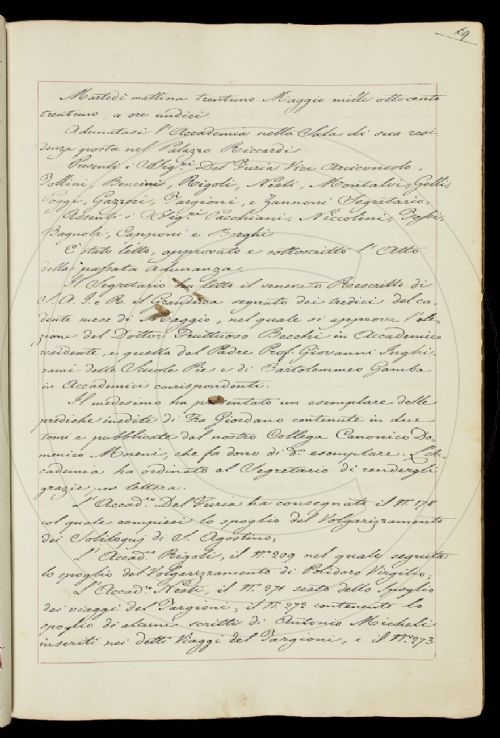 49
Martedì mattina trentuno Maggio mille ottocento
trentuno, a ore undici
Adunatasi l'Accademia nella Sala di sua resi-
denza posta nel Palazzo Riccardi
Presenti i Sigri. Del Furia Vice Arciconsolo,
Pollini, Bencini, Rigoli, Nesti, Montalvi, Gelli,
Gazzeri, Targioni, e Zannoni Segretario,
Assenti i Sigri. Pacchiani, Niccolini,
Bagnoli, Capponi e Borghi
È stato letto, approvato e sottoscritto l'Atto
della passata Adunanza.
Il Segretario ha letto il venerato Rescritto di
S. A. I. e R. il Granduca segnato dei tredici del ca-
dente mese di Maggio, nel quale si approva l'ele-
zione del Dottor Fruttuoso Becchi in Accademico
residente, e quella del Padre Prof. Giovanni Inghi-
rami delle Scuole Pie e di Bartolommeo Gamba
in Accademici corrispondenti.
Il medesimo ha presentato un esemplare delle
prediche inedite di Fra Giordano contenute in due
tomi e pubblicate dal nostro Collega Canonico Do-
menico Moreni, che fa dono di do. esemplare. L'Ac-
cademia ha ordinato al Segretario di rendergli
grazie per lettera.
L'Accado. Del Furia ha consegnato il No. 178
col quale compiesi lo spoglio del Volgarizzamento
dei Soliloquj di S. Agostino;
L'Accado. Rigoli, il No. 209 nel quale seguita
lo spoglio del Volgarizzamento di Polidoro Virgilio;
L'Accado. Nesti, il No. 271 resto dello Spoglio
dei viaggi del Targioni; il No. 272 contenente lo
spoglio di alcuni scritti di Antonio Micheli
inseriti nei detti Viaggi del Targioni, e il No. 273